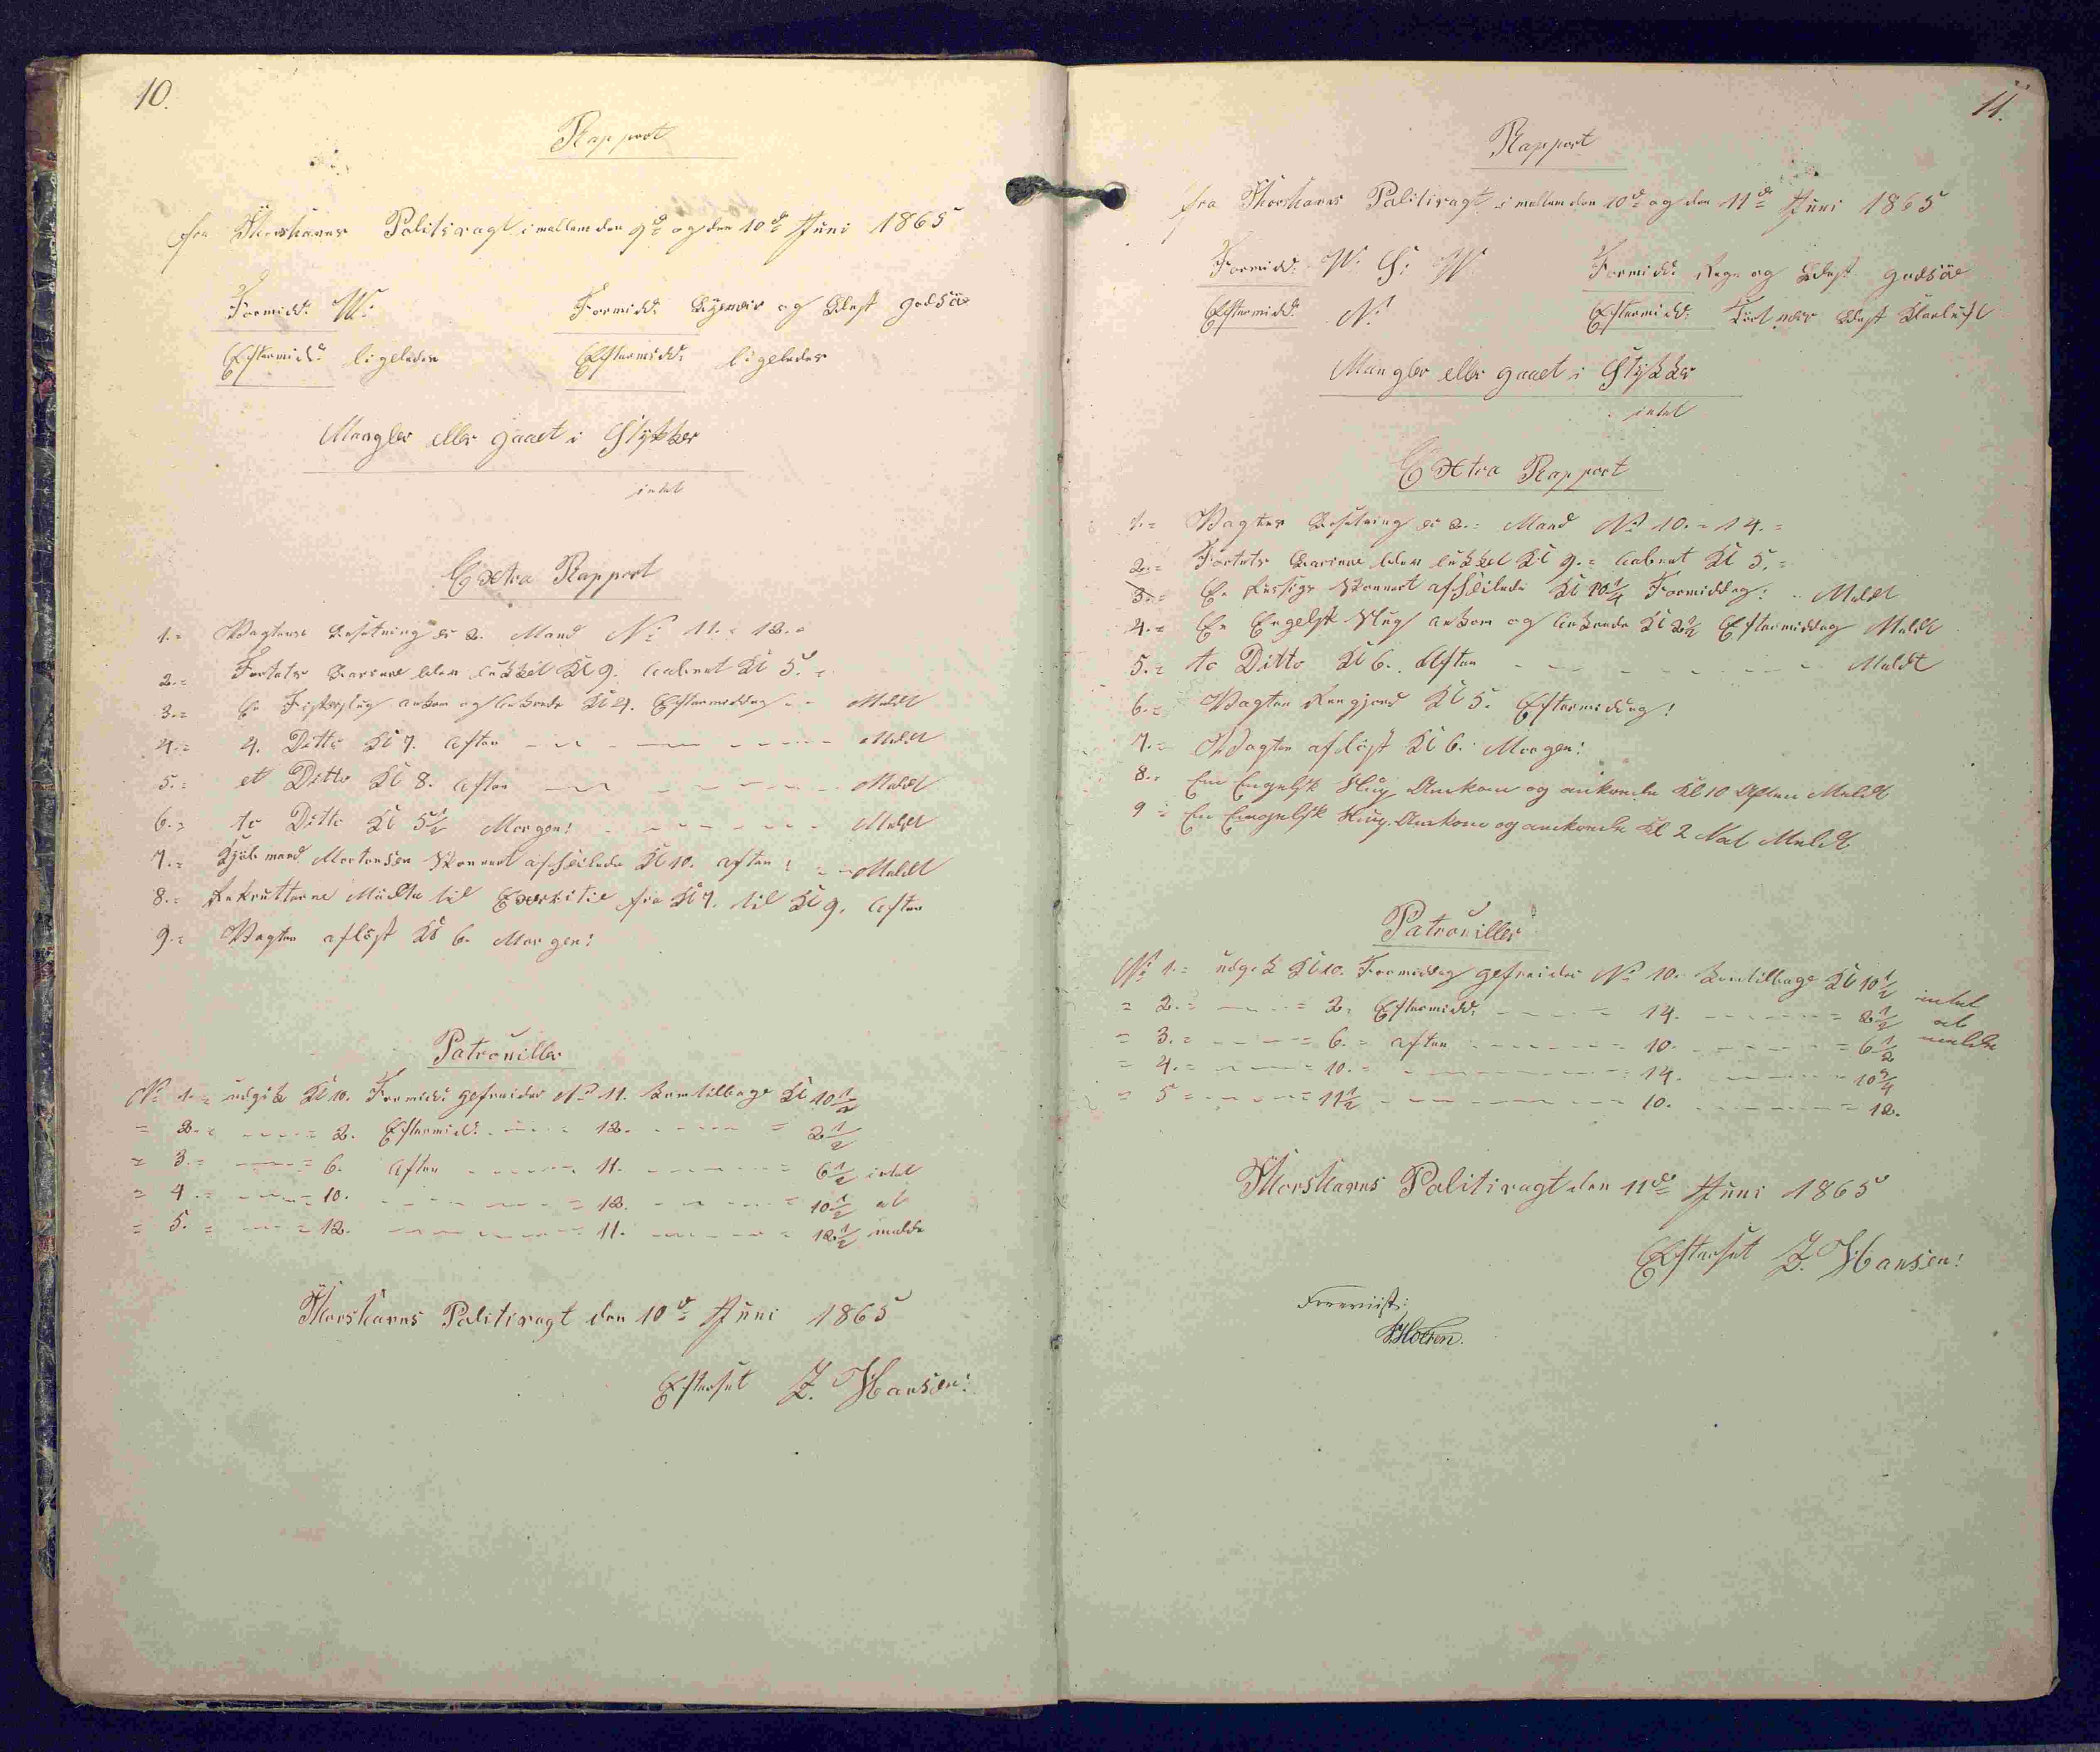 10.
Rapport
fra Thorshavns Politivagt imellem den 9de og den 10de Juni 1865
Formidd: W:
Formidd: og Blæst godsÿæ
Eftermidd: ligeledes
Eftermidd: ligeledes
Mangler eller gaaet i Stykker
intet
Extra Rapport
1.= Vagtens Besætning er 2. Mand No 11. = 12.=
2.= Fortets Barriere blev lukket Kl 9. aabnet Kl 5.=
3.= En Fiskerslup ankom og ankrede Kl 4. Eftermiddag - - Meldt
4.= 4. Ditto Kl 7. Aften - - - Meldt
5.= et Ditto Kl 8. Aften - - - Meldt
6.= to Ditto Kl 5½ Morgen! - - - Meldt
7.= Mortensen Skonnert afseilede Kl 10. Aften! - - Meldt
8.= Rekrutterne Mødte til Exersitie fra Kl 7. til Kl 9. Aften
9.= Vagten afløst Kl 6. Morgen!
Patrouiller
No 1.= udgik Kl 10. Formidd: gefreider No 11. kom tilbage Kl 10½
= 2.= - - = 2. Eftermidd: - - = 12. - - = 2½
= 3.= - - = 6. Aften - - = 11. - - = 6½ intet
= 4.= - - = 10. - - = 12. - - = 10½ at
= 5.= - - = 12. - - = 11. - - = 12½ melde
Thorshavns Politivagt den 10de Juni 1865
Efterset Z. Hansen!
11.
Rapport
fra Thorshavns Politivagt imellem den 10de og den 11de Juni 1865
Formidd: W: S: W
Formidd: Regn og Blæst
Eftermidd: N:
Eftermidd: Blæst
Mangler eller gaaet i Stykker
intet
Extra Rapport
1.= Vagtens Besætning er 2.= Mand No 10.= 14.=
2.= Fortets Barriere blev lukket Kl 9.= aabnet Kl 5.=
3.= En Russisk Skonnert afseilede Kl 10¼ Formiddag! - Meldt
4.= En Engelsk Slup ankom og ankrede Kl 2½ Eftermiddag Meldt
5.= to Ditto Kl 6. Aften - - - Meldt
6.= Vagten Rengjord Kl 5. Eftermiddag!
7.= Vagten afløst Kl 6. Morgen!
8.= En Engelsk Slup Ankom og ankrede Kl 10 Aften Meldt
9 = En Engelsk Slup Ankom og ankrede Kl 2 Nat Meldt
Patrouiller
No 1.= udgik Kl 10. Formiddag gefreider No 10. kom tilbage Kl 10½ intet
= 2.= - - = 2. Eftermidd: - - = 14. - - = 2½ at
= 3.= - - = 6.= Aften - - = 10. - - = 6½ melde
= 4.= - - = 10.= - - = 14. - - = 10¾
= 5 = - - = 11½ - - = 10. - - = 12.
Thorshavns Politivagt den 11de Juni 1865
Efterset Z. Hansen!
Foreviist: